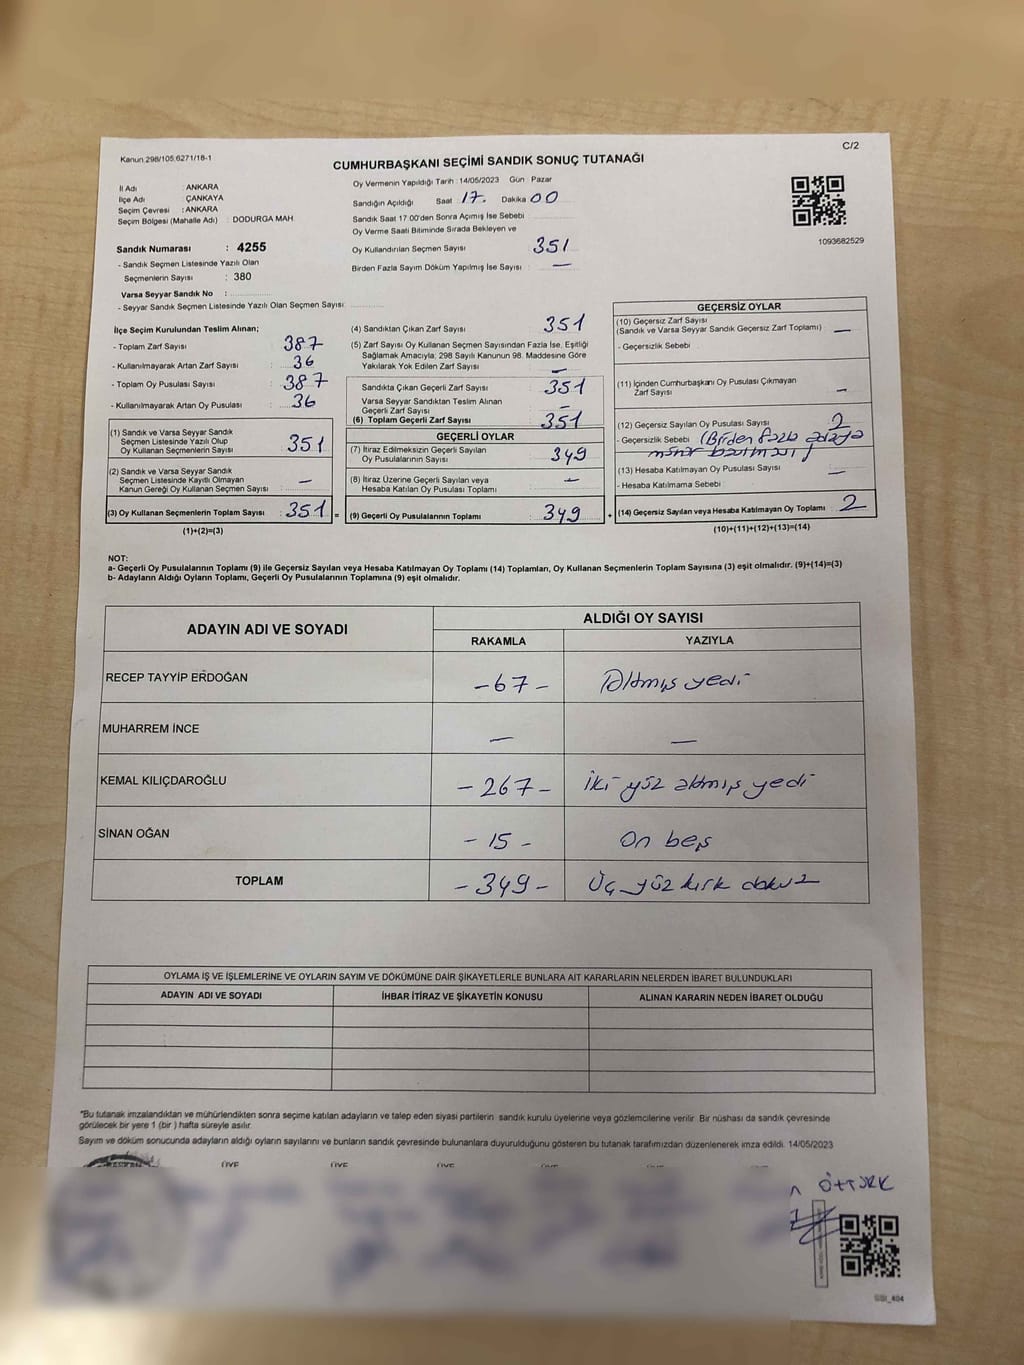 Kanun 298/105,6271/18-1
C/2
CUMHURBAŞKANI SEÇİMİ SANDIK SONUÇ TUTANAĞI
İl Adı : ANKARA
İlçe Adı : ÇANKAYA
Seçim Çevresi : ANKARA
Seçim Bölgesi (Mahalle Adı) : DODURGA MAH
Sandık Numarası : 4255
- Sandık Seçmen Listesinde Yazılı Olan
Seçmenlerin Sayısı : 380
Varsa Seyyar Sandık No :
- Seyyar Sandık Seçmen Listesinde Yazılı Olan Seçmen Sayısı:
Oy Vermenin Yapıldığı Tarih : 14/05/2023 Gün : Pazar
Sandığın Açıldığı Saat 17. Dakika 00
Sandık Saat 17.00'den Sonra Açılmış İse Sebebi
Oy Verme Saati Bitiminde Sırada Bekleyen ve
Oy Kullandırılan Seçmen Sayısı : 351
Birden Fazla Sayım Döküm Yapılmış İse Sayısı : —
1093682529
İlçe Seçim Kurulundan Teslim Alınan;
- Toplam Zarf Sayısı : 387
- Kullanılmayarak Artan Zarf Sayısı : 36
- Toplam Oy Pusulası Sayısı : 387
- Kullanılmayarak Artan Oy Pusulası : 36
(1) Sandık ve Varsa Seyyar Sandık
Seçmen Listesinde Yazılı Olup
Oy Kullanan Seçmenlerin Sayısı : 351
(2) Sandık ve Varsa Seyyar Sandık
Seçmen Listesinde Kayıtlı Olmayan
Kanun Gereği Oy Kullanan Seçmen Sayısı : —
(3) Oy Kullanan Seçmenlerin Toplam Sayısı : 351 =
(1)+(2)=(3)
(4) Sandıktan Çıkan Zarf Sayısı : 351
(5) Zarf Sayısı Oy Kullanan Seçmen Sayısından Fazla İse, Eşitliği
Sağlamak Amacıyla; 298 Sayılı Kanunun 98. Maddesine Göre
Yakılarak Yok Edilen Zarf Sayısı : —
Sandıkta Çıkan Geçerli Zarf Sayısı : 351
Varsa Seyyar Sandıktan Teslim Alınan
Geçerli Zarf Sayısı : —
(6) Toplam Geçerli Zarf Sayısı : 351
GEÇERLİ OYLAR
(7) İtiraz Edilmeksizin Geçerli Sayılan
Oy Pusulalarının Sayısı : 349
(8) İtiraz Üzerine Geçerli Sayılan veya
Hesaba Katılan Oy Pusulası Toplamı : —
(9) Geçerli Oy Pusulalarının Toplamı : 349 +
GEÇERSİZ OYLAR
(10) Geçersiz Zarf Sayısı
(Sandık ve Varsa Seyyar Sandık Geçersiz Zarf Toplamı) : —
- Geçersizlik Sebebi :
(11) İçinden Cumhurbaşkanı Oy Pusulası Çıkmayan
Zarf Sayısı : —
(12) Geçersiz Sayılan Oy Pusulası Sayısı : 2
- Geçersizlik Sebebi : (Birden fazla adaya
mühür basılması)
(13) Hesaba Katılmayan Oy Pusulası Sayısı : —
- Hesaba Katılmama Sebebi :
(14) Geçersiz Sayılan veya Hesaba Katılmayan Oy Toplamı : 2
(10)+(11)+(12)+(13)=(14)
NOT:
a- Geçerli Oy Pusulalarının Toplamı (9) ile Geçersiz Sayılan veya Hesaba Katılmayan Oy Toplamı (14) Toplamları, Oy Kullanan Seçmenlerin Toplam Sayısına (3) eşit olmalıdır. (9)+(14)=(3)
b- Adayların Aldığı Oyların Toplamı, Geçerli Oy Pusulalarının Toplamına (9) eşit olmalıdır.
ADAYIN ADI VE SOYADI
ALDIĞI OY SAYISI
RAKAMLA YAZIYLA
RECEP TAYYİP ERDOĞAN -67- Altmış yedi
MUHARREM İNCE — —
KEMAL KILIÇDAROĞLU -267- İki yüz altmış yedi
SİNAN OĞAN -15- On beş
TOPLAM -349- Üç yüz kırk dokuz
OYLAMA İŞ VE İŞLEMLERİNE VE OYLARIN SAYIM VE DÖKÜMÜNE DAİR ŞİKAYETLERLE BUNLARA AİT KARARLARIN NELERDEN İBARET BULUNDUKLARI
ADAYIN ADI VE SOYADI İHBAR İTİRAZ VE ŞİKAYETİN KONUSU ALINAN KARARIN NEDEN İBARET OLDUĞU
"Bu tutanak imzalandıktan ve mühürlendikten sonra seçime katılan adayların ve talep eden siyasi partilerin sandık kurulu üyelerine veya gözlemcilerine verilir. Bir nüshası da sandık çevresinde
görülecek bir yere 1 (bir ) hafta süreyle asılır.
Sayım ve döküm sonucunda adayların aldığı oyların sayılarını ve bunların sandık çevresinde bulunanlara duyurulduğunu gösteren bu tutanak tarafımızdan düzenlenerek imza edildi. 14/05/2023
ÜYE ÜYE ÜYE ÜYE ÜYE ÜYE